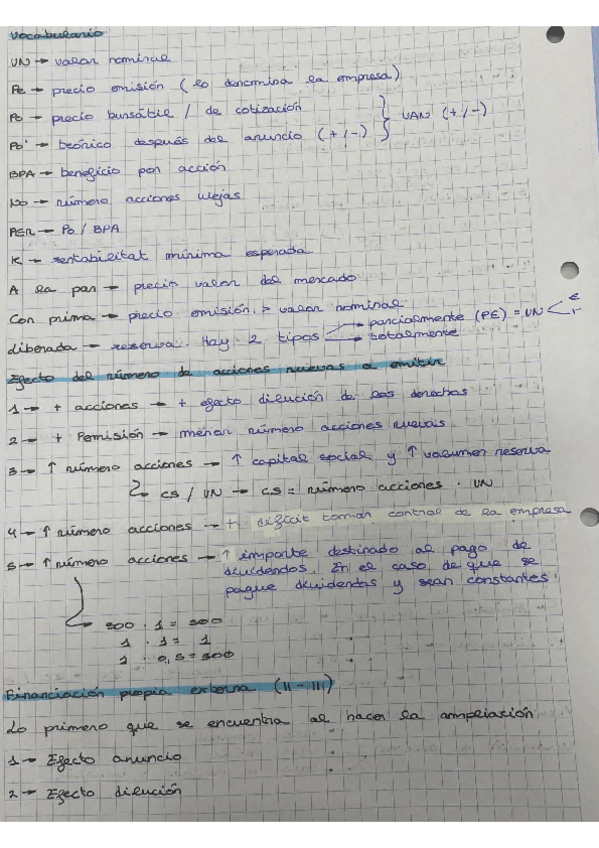 Vocabulario
VN → valor nominal
Pe → precio emisión (lo denomina la empresa)
Po → precio bursátil / de cotización
Po' → teórico después del anuncio (+/-) } VAN (+/-)
BPA → beneficio por acción
No → número acciones viejas
PER → Po / BPA
K → rentabilitat mínima esperada
A la par → precio valor del mercado
Con prima → precio emisión > valor nominal
liberada → reserva. Hay 2 tipos → parcialmente (PE) = VN < e r
→ totalmente
Efecto del número de acciones nuevas a emitir
1 → + acciones → + efecto dilución de los derechos
2 → + Pemisión → menor número acciones nuevas
3 → ↑ número acciones → ↑ capital social y ↑ volumen reserva
↳ CS / VN → CS = número acciones · VN
4 → ↑ número acciones → + difícil toman control de la empresa
5 → ↑ número acciones → ↑ importe destinado al pago de
dividendos. En el caso de que se
pague dividendos y sean constantes
· 1 =
1 · 1 = 1
1 · 0,5 =
Financiación propia externa (II - III)
Lo primero que se encuentra al hacer la ampliación
1 → Efecto anuncio
2 → Efecto dilución